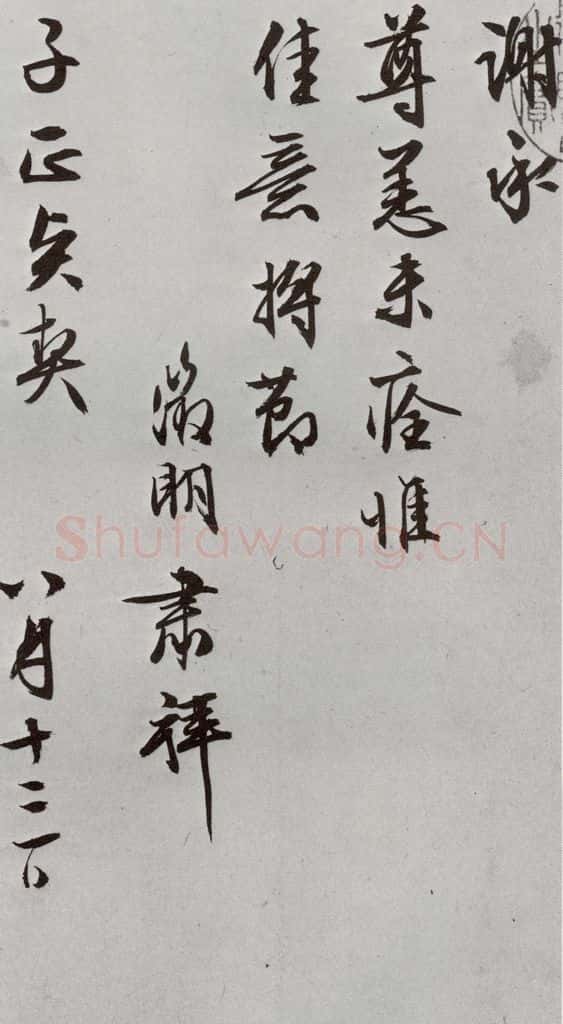 謝承
尊恙未痊惟
佳意撙節
徵明肅拜
子正贞契
八月十二日
Shufawang.CN